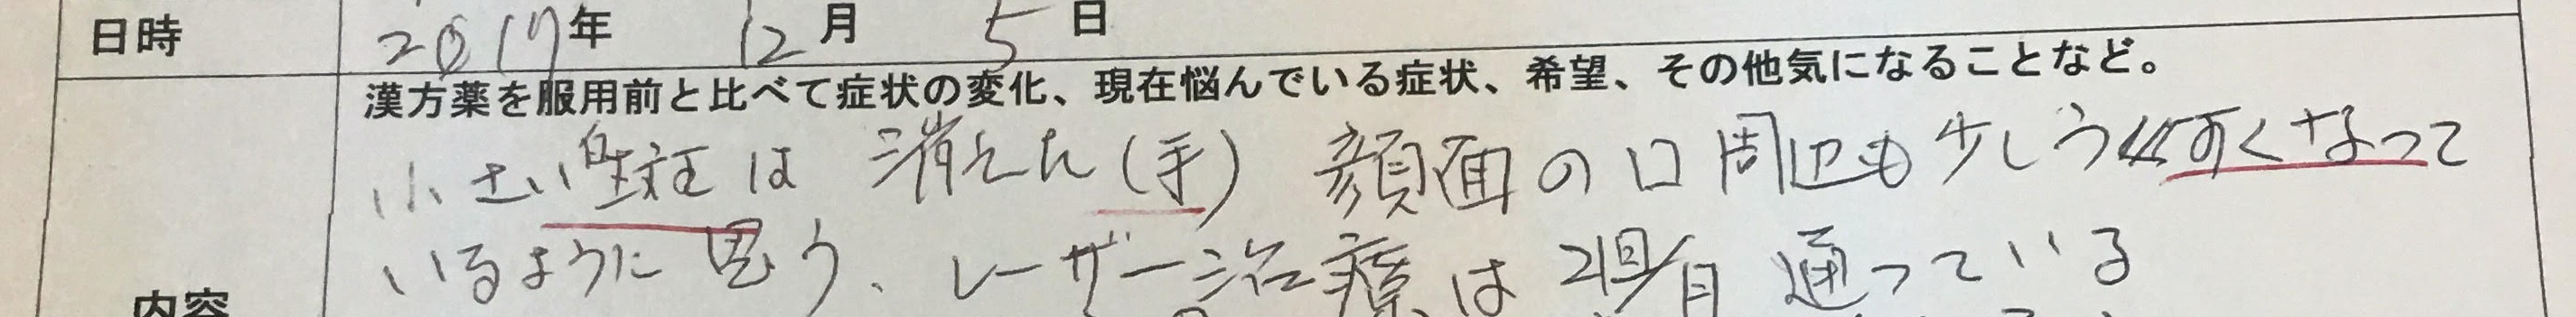 日時 2017年 12月 5日
漢方薬を服用前と比べて症状の変化、現在悩んでいる症状、希望、その他気になることなど。
小さい白斑は消えた(手) 顔面の口周辺も少しうすくなって
いるように思う、レーザー治療は2回/月 通っている
内容